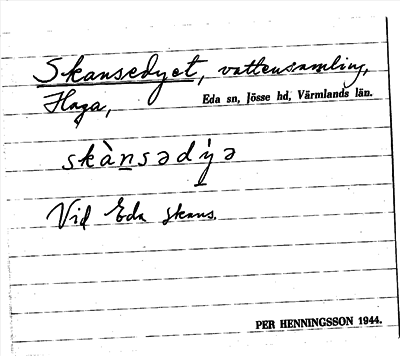 Skansedyet, vattensamling,
Haga, Eda sn, Jösse hd, Värmlands län.
skànsədyə
Vid Eda skans.
PER HENNINGSSON 1944.